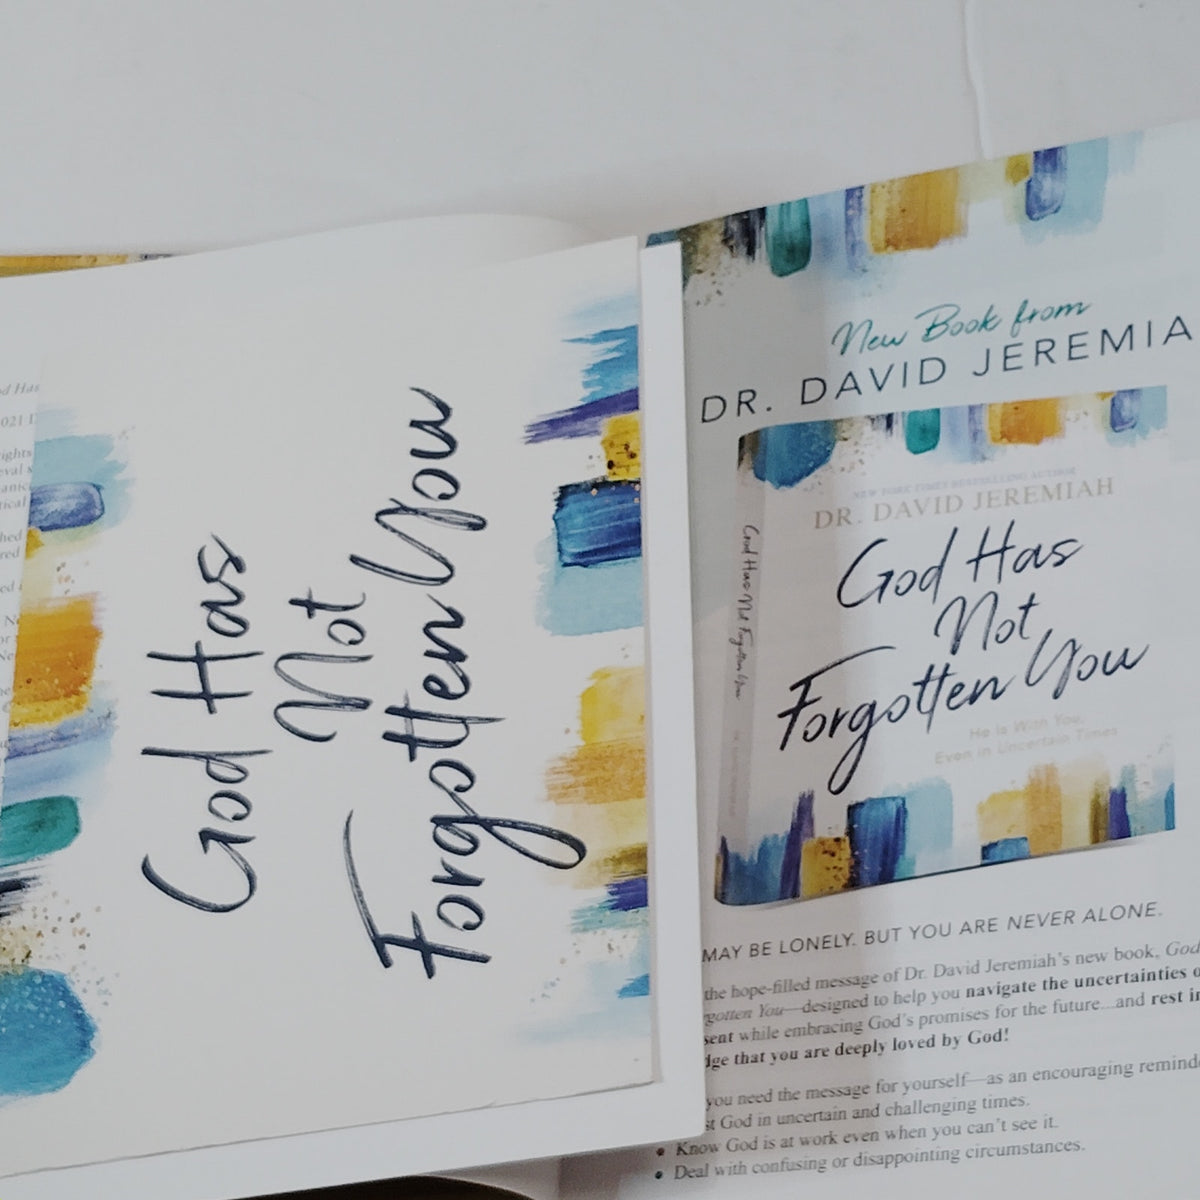 God Has
Not
Forgotten You
od Has
021
ights
hed
red
New Book from
DR. DAVID JEREMIA
NEW YORK TIMES BESTSELLING AUTHOR
DR. DAVID JEREMIAH
God Has
Not
Forgotten You
He Is With You,
Even in Uncertain Times
God Has Not Forgotten You
MAY BE LONELY. BUT YOU ARE NEVER ALONE.
the hope-filled message of Dr. David Jeremiah's new book, God
gotten You—designed to help you navigate the uncertainties o
sent while embracing God's promises for the future...and rest in
dge that you are deeply loved by God!
you need the message for yourself—as an encouraging reminde
st God in uncertain and challenging times.
• Know God is at work even when you can't see it.
• Deal with confusing or disappointing circumstances.